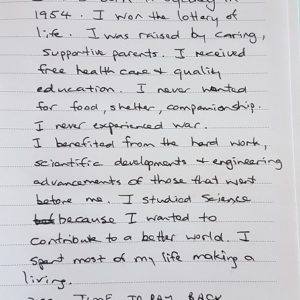 1954. I won the lottery of
life. I was raised by caring,
supportive parents. I received
free health care & quality
education. I never wanted
for food, shelter, companionship.
I never experienced war.
I benefited from the hard work,
scientific developments & engineering
advancements of those that went
before me. I studied Science
because I wanted to
contribute to a better world. I
spent most of my life making a
living.
TIME TO PAY BACK